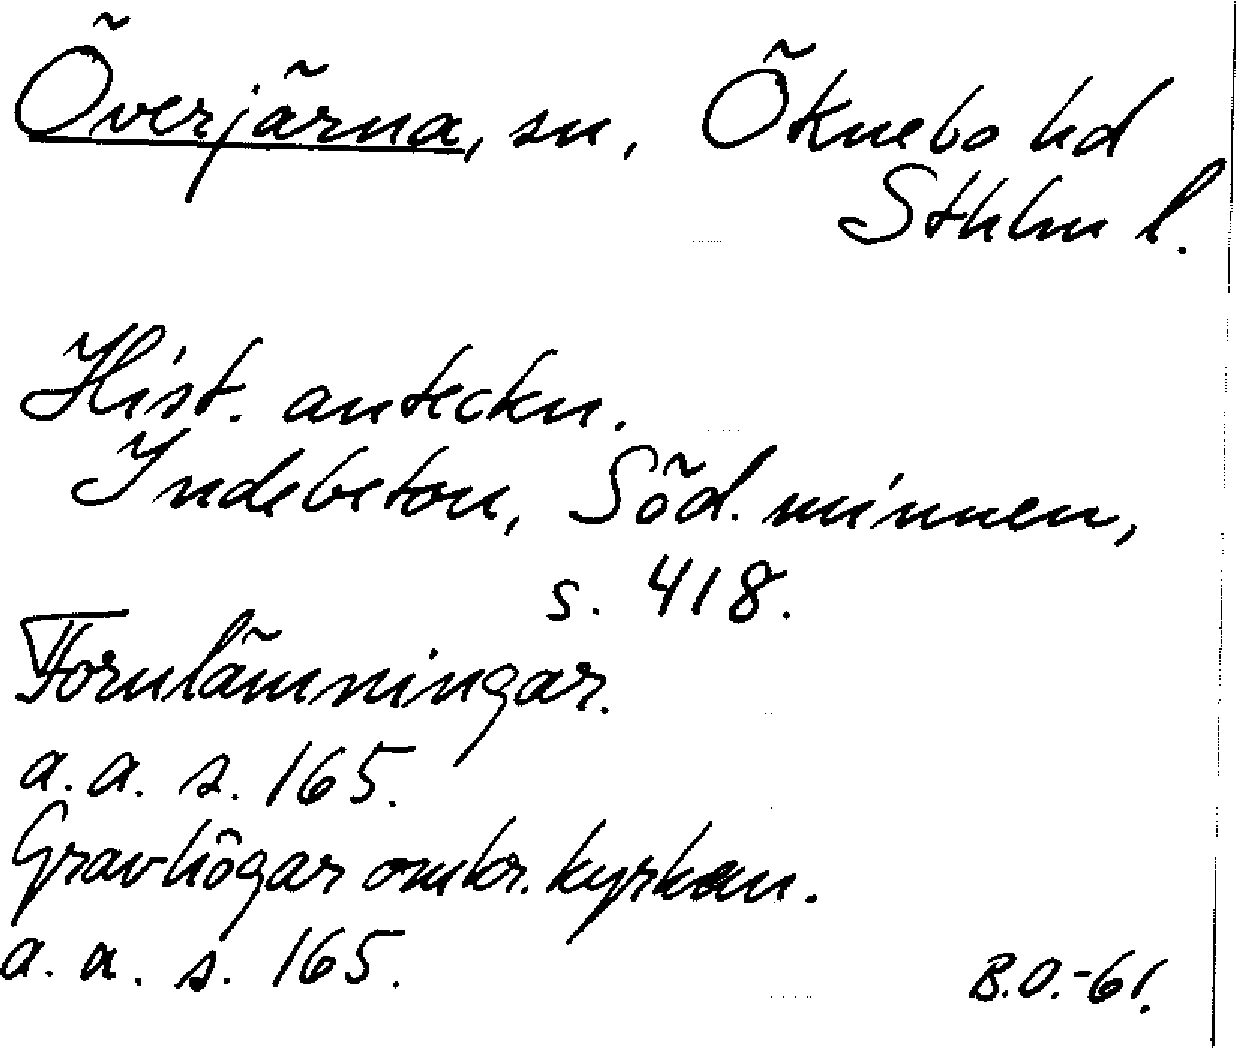 Överjärna, sn, Öknebo hd
Sthlm l.
Hist. anteckn.
Indebetou, Söd. minnen,
s. 418.
Fornlämningar.
a. a. s. 165.
Gravhögar omkr. kyrkan.
a. a. s. 165.
B.O.-61.